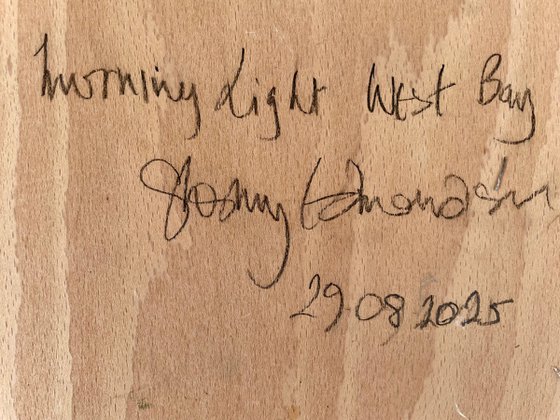 Morning Light West Bay
Edmondson
29.08 2025